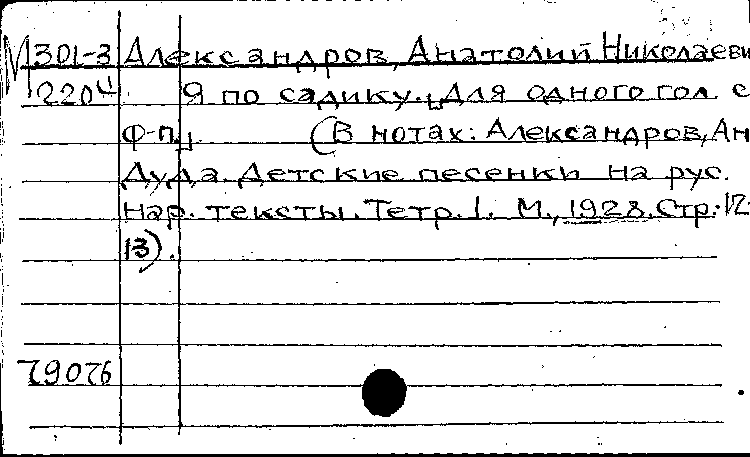 М 301-3 Александров, Анатолий Николаеви
2204 Я по садику. [Для одного гол. с
ф-п.] (В нотах: Александров, Ан
Дуда. Детские песенки на рус.
нар. тексты. Тетр. 1. М., 1928. Стр. 12-
13).
79076